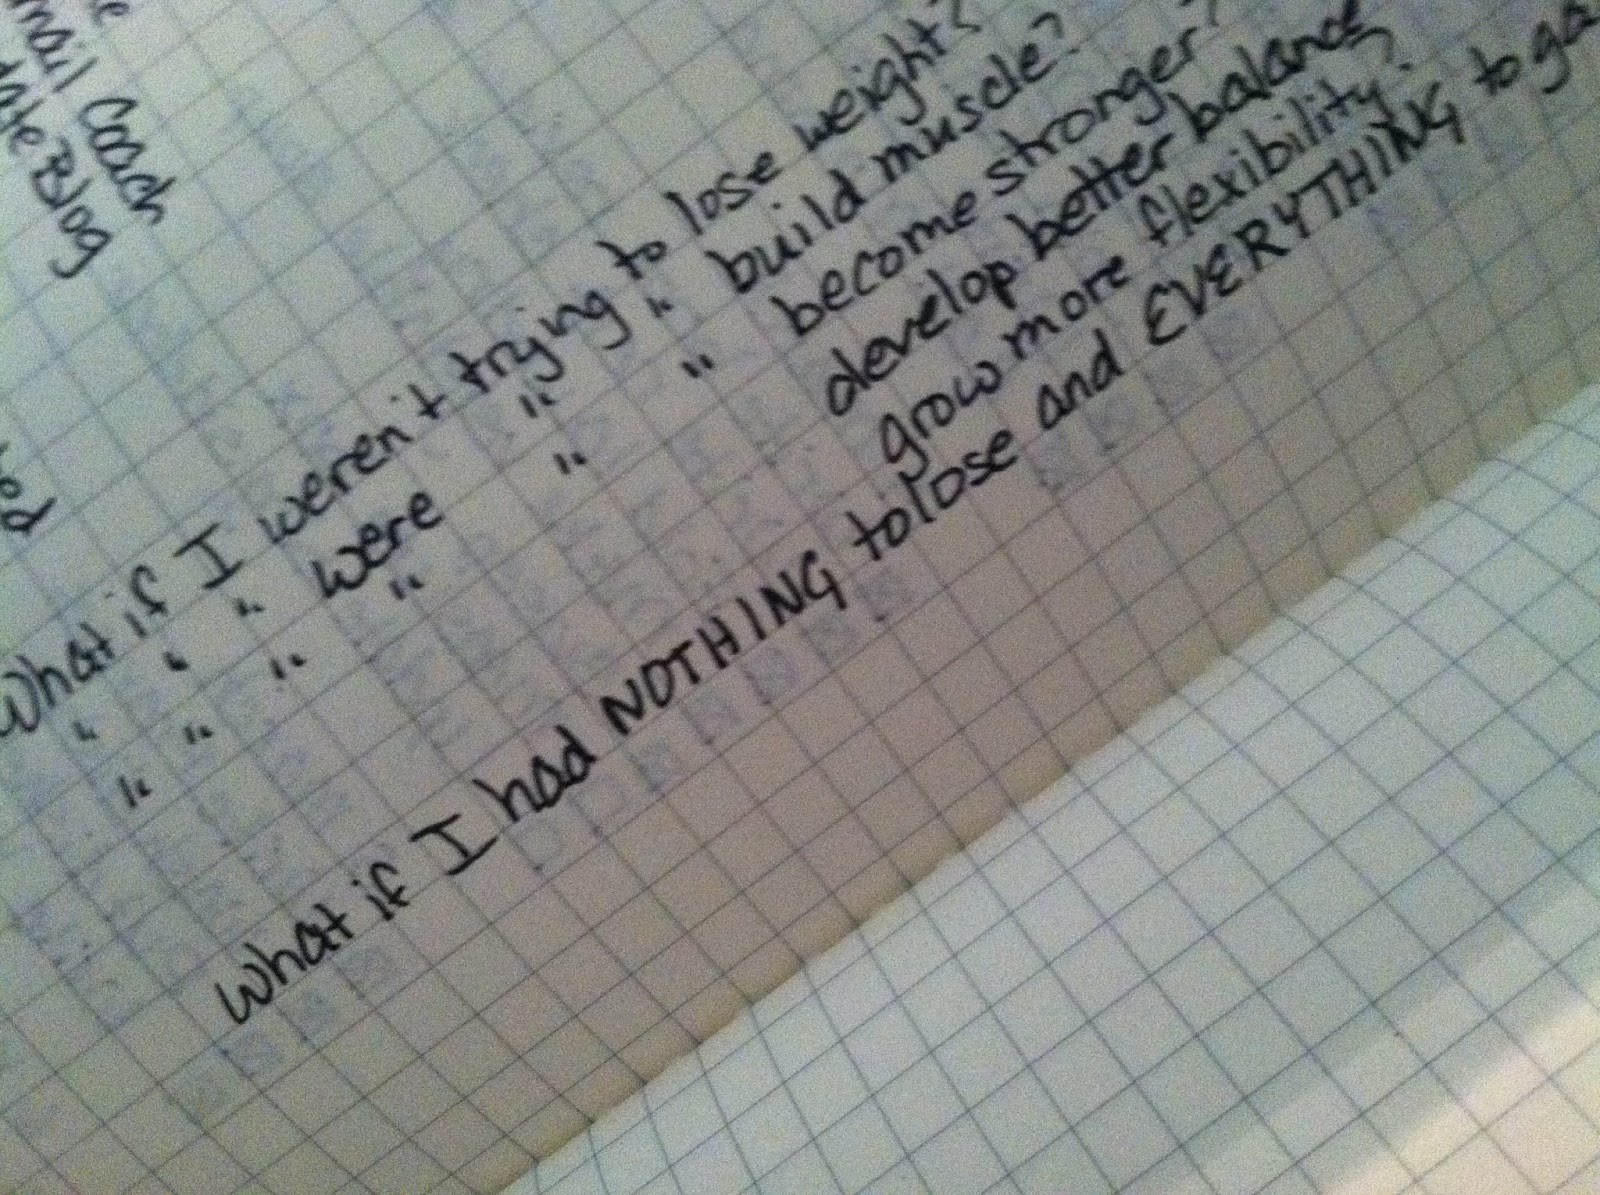 mail Coach
Blog
What if I weren't trying to lose weight?
" " " were " " build muscle?
" " " " " " become stronger?
develop better balance
grow more flexibility?
What if I had NOTHING to lose and EVERYTHING to